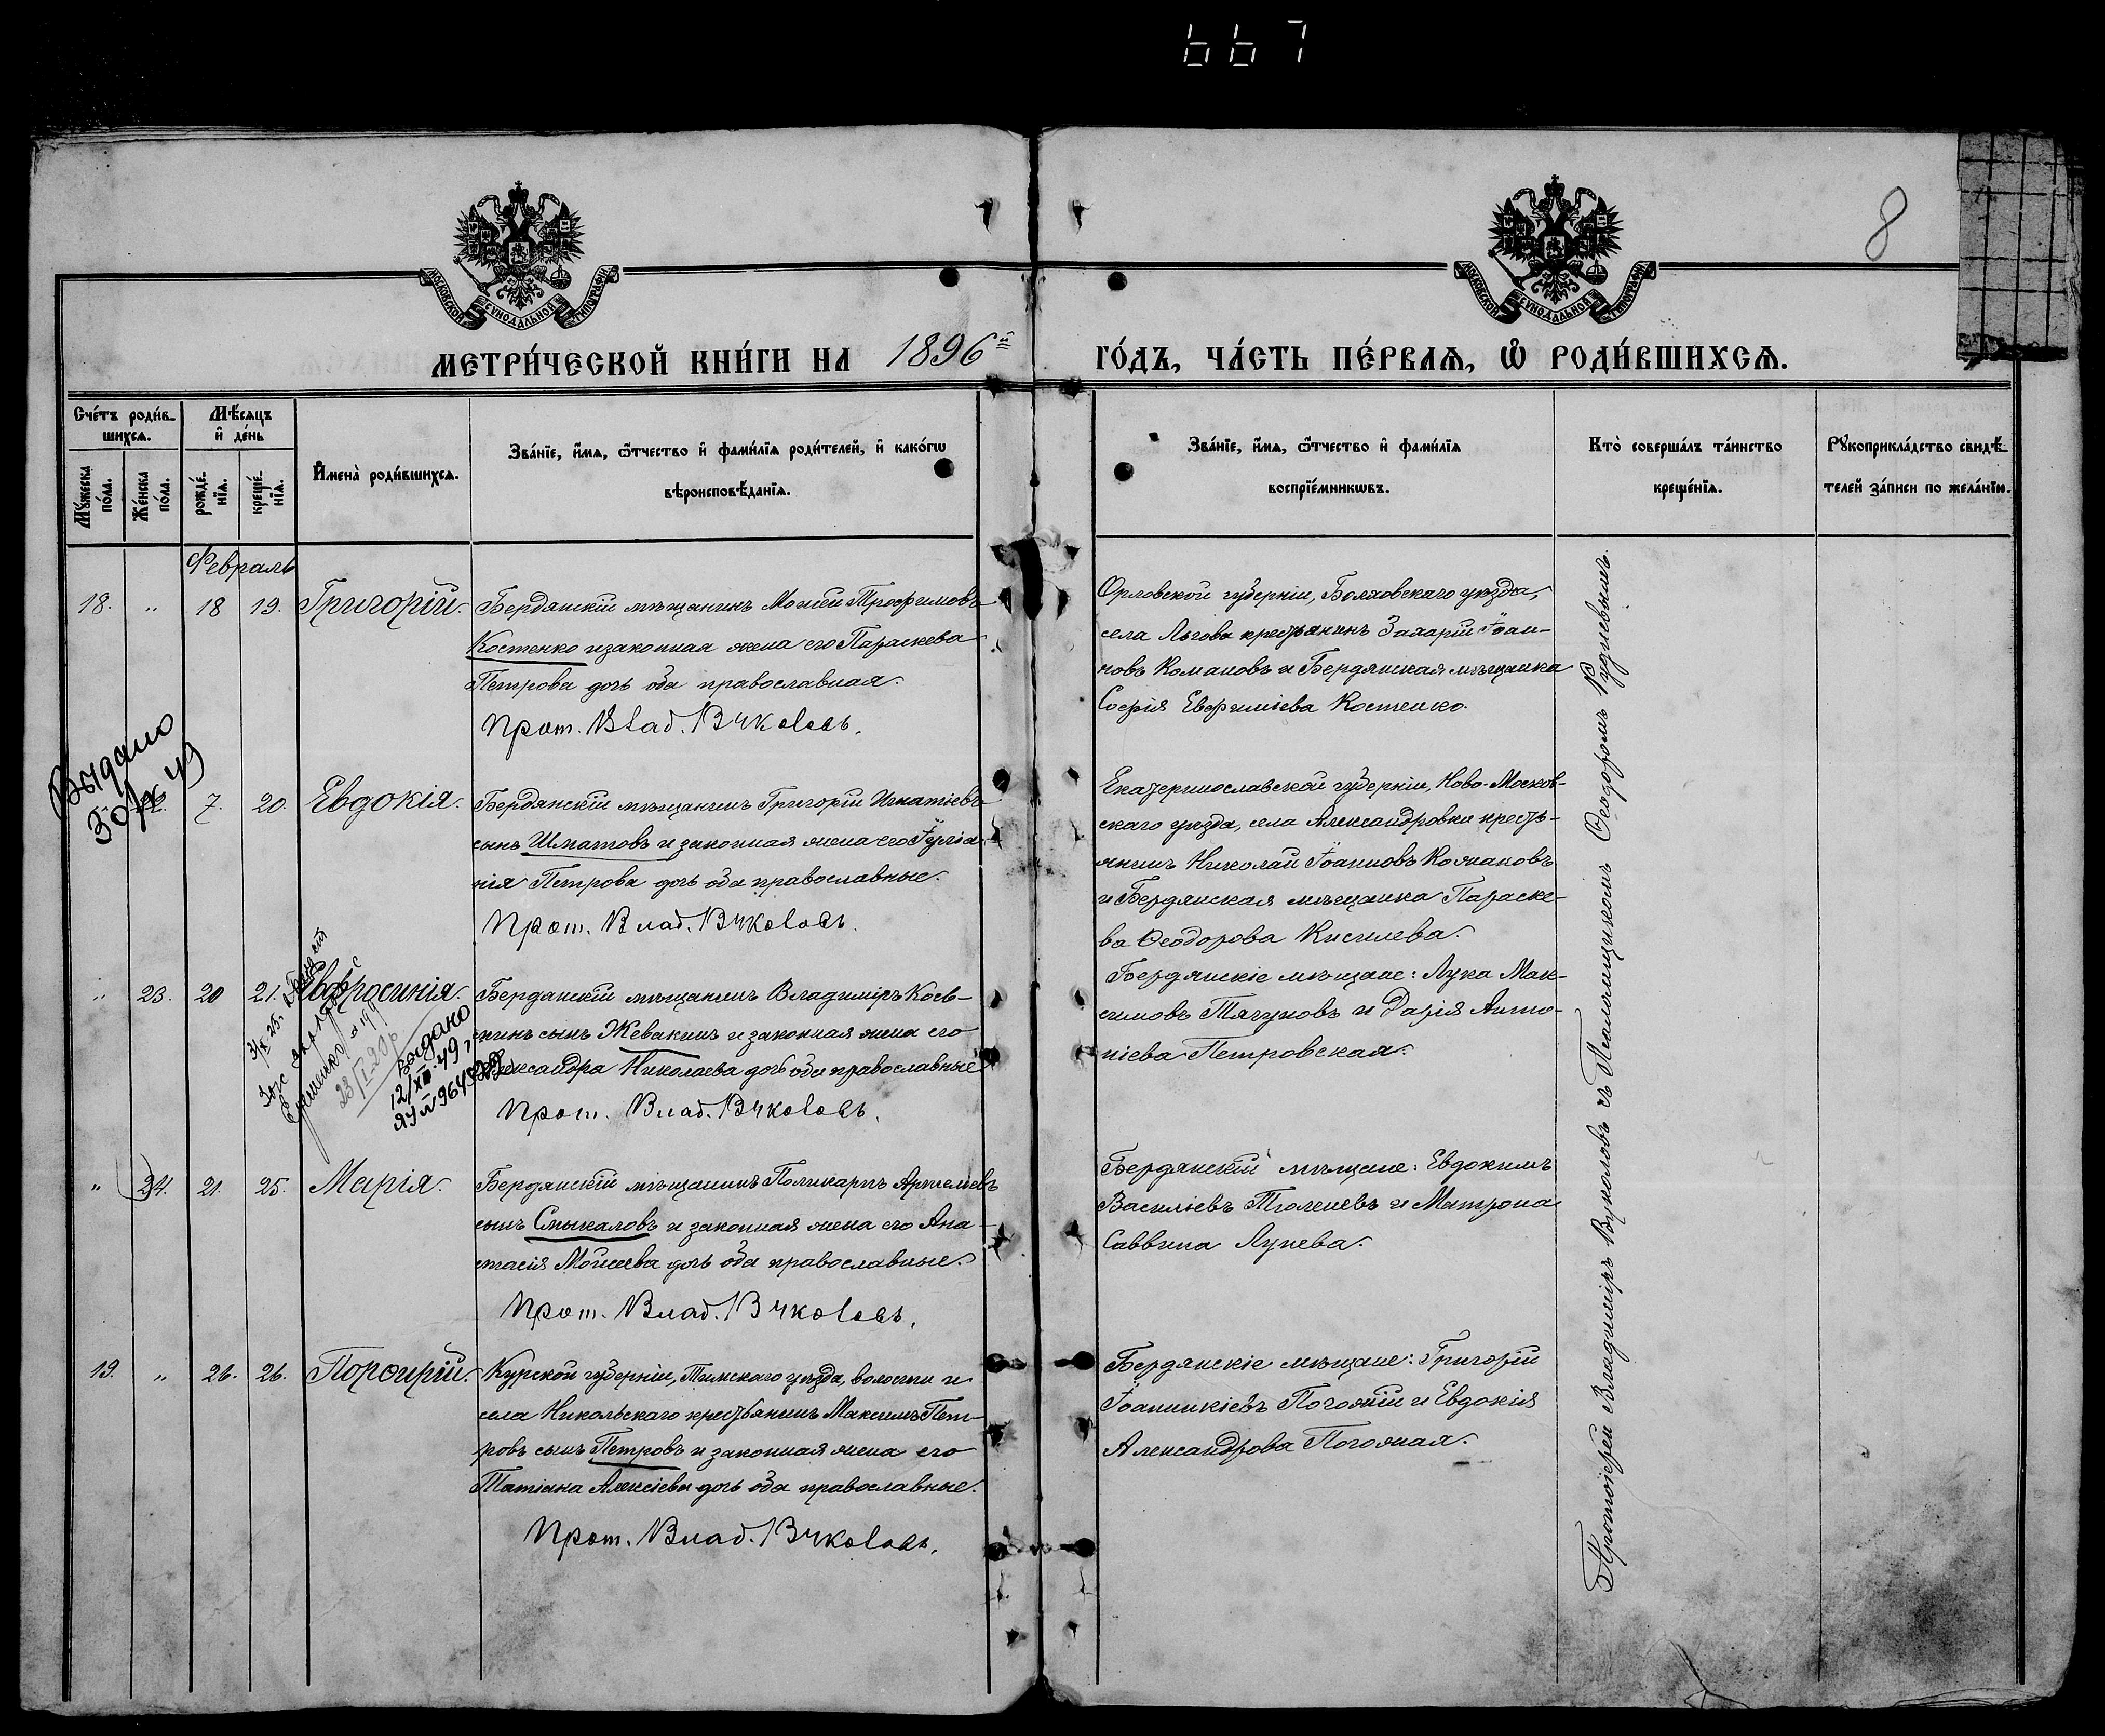 667
8
МОСКОВСКОЙ СѴНОДАЛЬНОЙ ТИПОГРАФІИ
МОСКОВСКОЙ СѴНОДАЛЬНОЙ ТИПОГРАФІИ
МЕТРИ́ЧЕСКОЙ КНИ́ГИ НА 1896й ГО́ДЪ, ЧА́СТЬ ПЕ́РВАѦ, Ѡ҆ РОДИ́ВШИХСѦ.
Сче́тъ роди́в-
шихсѧ.
Мѣ́сяцъ
и҆ де́нь
Мꙋ́жеска
по́ла.
Же́нска
по́ла.
рожде́-
нїѧ.
креще́-
нїѧ.
И҆мена̀ роди́вшихсѧ.
Зва́нїе, и҆́мѧ, ѻ҆́тчество и҆ фами́лїѧ роди́телей, и҆ како́гѡ
вѣроисповѣ́данїѧ.
Зва́нїе, и҆́мѧ, ѻ҆́тчество и҆ фами́лїѧ
воспрїе́мникѡвъ.
Кто̀ соверша́лъ та́инство
креще́нїѧ.
Рꙋкоприкла́дство свидѣ́-
телей за́писи по жела́нїю.
Февраль
18. „ 18 19. Григорій.
Бердянскій мѣщанинъ Моисей Трофимовъ
Костенко и законная жена его Параскева
Петрова дочь оба православная.
Прот. Влад. Вуколовъ.
Орловской губерніи, Болховскаго уѣзда,
села Льгова крестьянинъ Захарій Іоан-
новъ Комановъ и Бердянская мѣщанка
Софія Евфиміева Костенко.
Выдано
22. 7. 20. Евдокія.
Бердянскій мѣщанинъ Григорій Игнатіевъ
сынъ Шматовъ и законная жена его Іуліа-
нія Петрова дочь оба православные.
Прот. Влад. Вуколовъ.
Екатеринославской губерніи, Ново-Москов-
скаго уѣзда, села Александровки кресть-
янинъ Николай Іоанновъ Колпаковъ
и Бердянская мѣщанка Параске-
ва Ѳеодорова Киселева.
„ 23. 20 21. Евфросинія.
Бердянскій мѣщанинъ Владиміръ Косъ-
минъ сынъ Жевакинъ и законная жена его
Александра Николаева дочь оба православные
Прот. Влад. Вуколовъ.
Бердянскіе мѣщане: Лука Мак-
симовъ Тягуновъ и Дарія Анто-
ніева Петровская.
выдано
12/XII 49
„ 24. 21. 25. Марія.
Бердянскій мѣщанинъ Поликарпъ Артемиевъ
сынъ Смыкаловъ и законная жена его Ана-
стасія Моисеева дочь оба православные.
Прот. Влад. Вуколовъ.
Бердянскій мѣщане: Евдокимъ
Василіевъ Тюленевъ и Матрона
Саввина Лунева.
19. „ 26. 26. Порфирій.
Курской губерніи, Тимскаго уѣзда, волости и
села Никольскаго крестьянинъ Максимъ Пет-
ровъ сынъ Петровъ и законная жена его
Татіана Алексіева дочь оба православные.
Прот. Влад. Вуколовъ.
Бердянскіе мѣщане: Григорій
Іоанникіевъ Погожій и Евдокія
Александрова Погожая.
Протоіерей Владиміръ Вуколовъ съ Псаломщикомъ Ѳеодоромъ Рудневымъ.